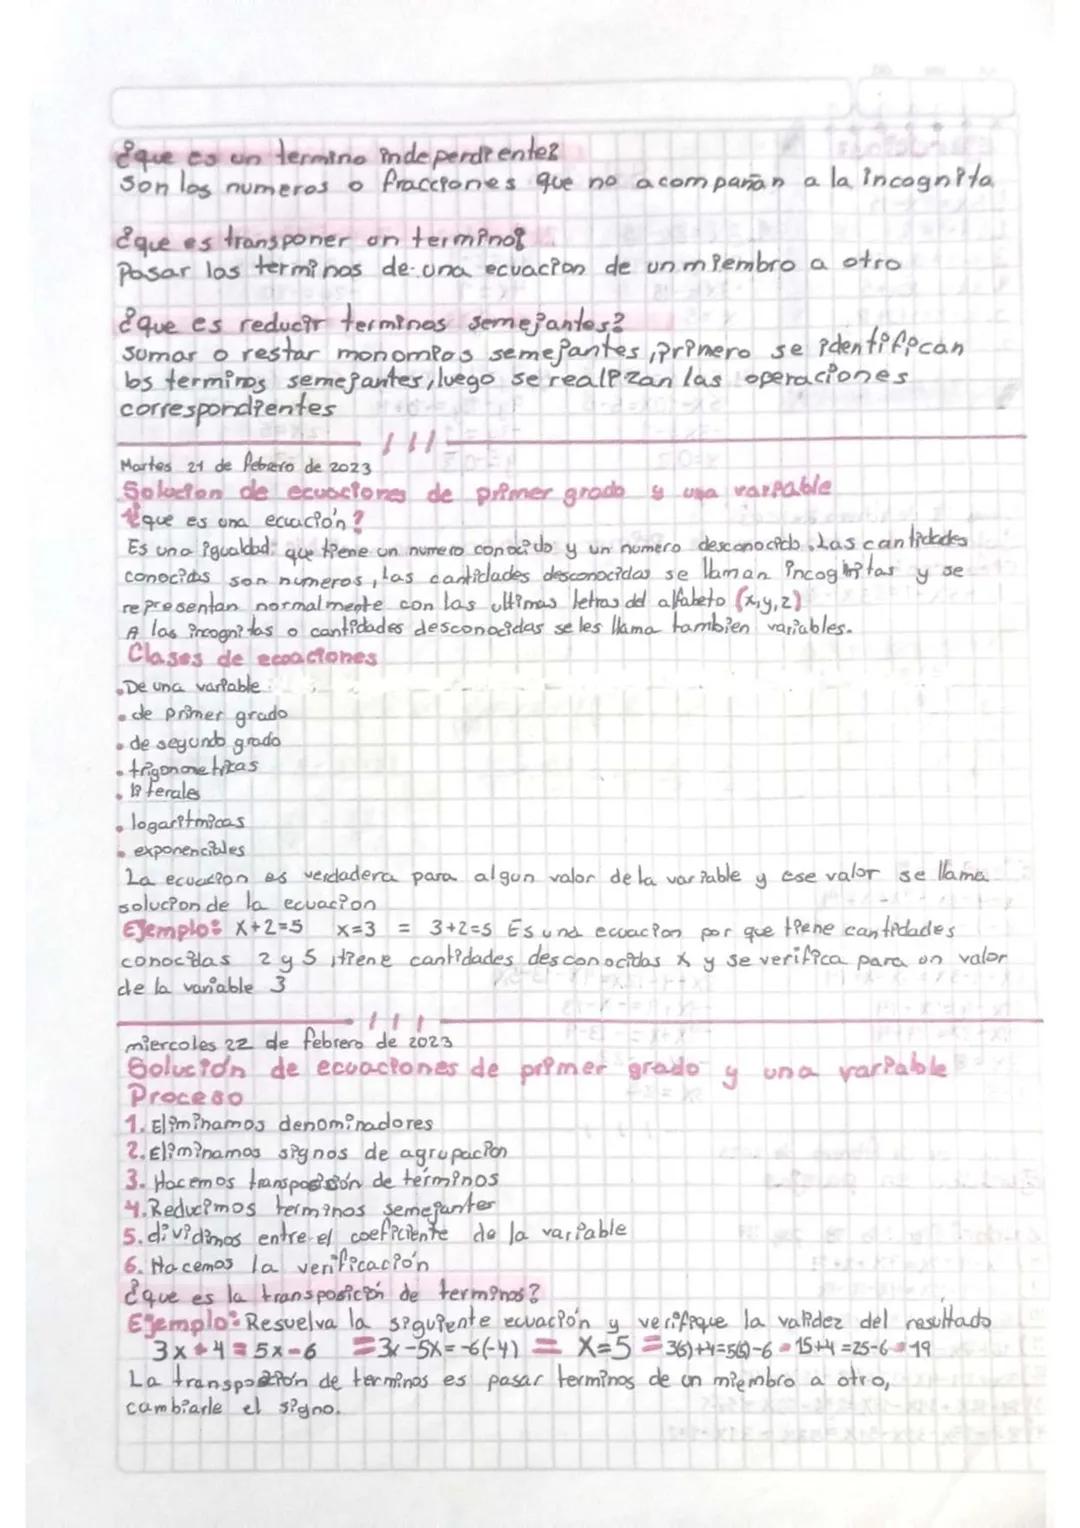 ¿que es un termino independiente?
Son los numeros o fracciones que no acompañan a la incognita
¿que es transponer un termino?
Pasar los terminos de una ecuacion de un miembro a otro
¿que es reducir terminos semejantes?
sumar o restar monomios semejantes, primero se identifican
los terminos semejantes, luego se realizan las operaciones
correspondientes
Martes 21 de febrero de 2023
Solucion de ecuaciones de primer grado y una variable
¿que es una ecuación?
Es una igualdad que tiene un numero conocido y un numero desconocido. Las cantidades
conocidas son numeros, las cantidades desconocidas se llaman incognitas y se
representan normalmente con las ultimas letras del alfabeto (x,y,z)
A las incognitas o cantidades desconocidas se les llama tambien variables.
Clases de ecuaciones
• De una variable
• de primer grado
• de segundo grado
• trigonometricas
• literales
• logaritmicas
• exponenciales
La ecuacion es verdadera para algun valor de la variable y ese valor se llama
solucion de la ecuacion
Ejemplo: x+2=5 x=3 = 3+2=5 Es una ecuacion por que tiene cantidades
conocidas 2 y 5, tiene cantidades desconocidas x y se verifica para un valor
de la variable 3
miercoles 22 de febrero de 2023
Solución de ecuaciones de primer grado y una variable
Proceso
1. Eliminamos denominadores
2. Eliminamos signos de agrupacion
3. Hacemos transposisón de términos
4. Reducimos terminos semejantes
5. dividimos entre el coeficiente de la variable
6. Hacemos la verificación
¿que es la transposición de terminos?
Ejemplo: Resuelva la siguiente ecuación y verifique la validez del resultado
3x+4=5x-6 =3x-5x=-6(-4) = x=5 = 3(5)+4=5(5)-6 = 15+4=25-6=19
La transposizion de terminos es pasar terminos de un miembro a otro,
cambiarle el signo.